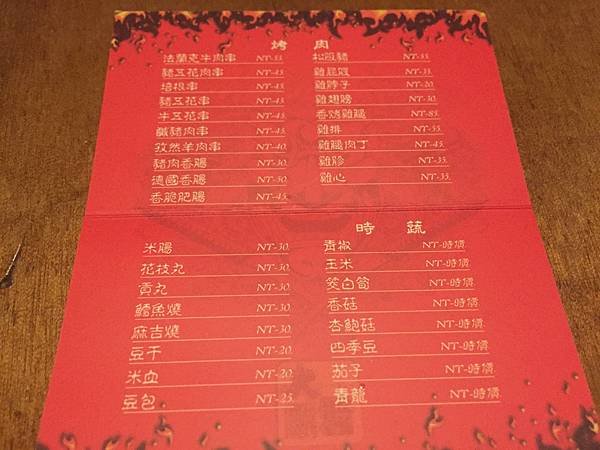 烤肉
法蘭克牛肉串 NT-55.
豬五花肉串 NT-45.
培根串 NT-45.
豬五花串 NT-45.
牛五花串 NT-45.
鹹豬肉串 NT-45.
孜然羊肉串 NT-40.
豬肉香腸 NT-30.
德國香腸 NT-50.
香脆肥腸 NT-45.
松阪豬 NT-55.
雞屁股 NT-35.
雞脖子 NT-20.
雞翅膀 NT-30.
香烤雞腿 NT-85.
雞排 NT-55.
雞腿肉丁 NT-45.
雞胗 NT-35.
雞心 NT-35.
米腸 NT-30.
花枝丸 NT-30.
貢丸 NT-30.
鱈魚燒 NT-30.
麻吉燒 NT-30.
豆干 NT-20.
米血 NT-20.
豆包 NT-25.
時蔬
青椒 NT-時價.
玉米 NT-時價.
筊白筍 NT-時價.
香菇 NT-時價.
杏鮑菇 NT-時價.
四季豆 NT-時價.
茄子 NT-時價.
青龍 NT-時價.